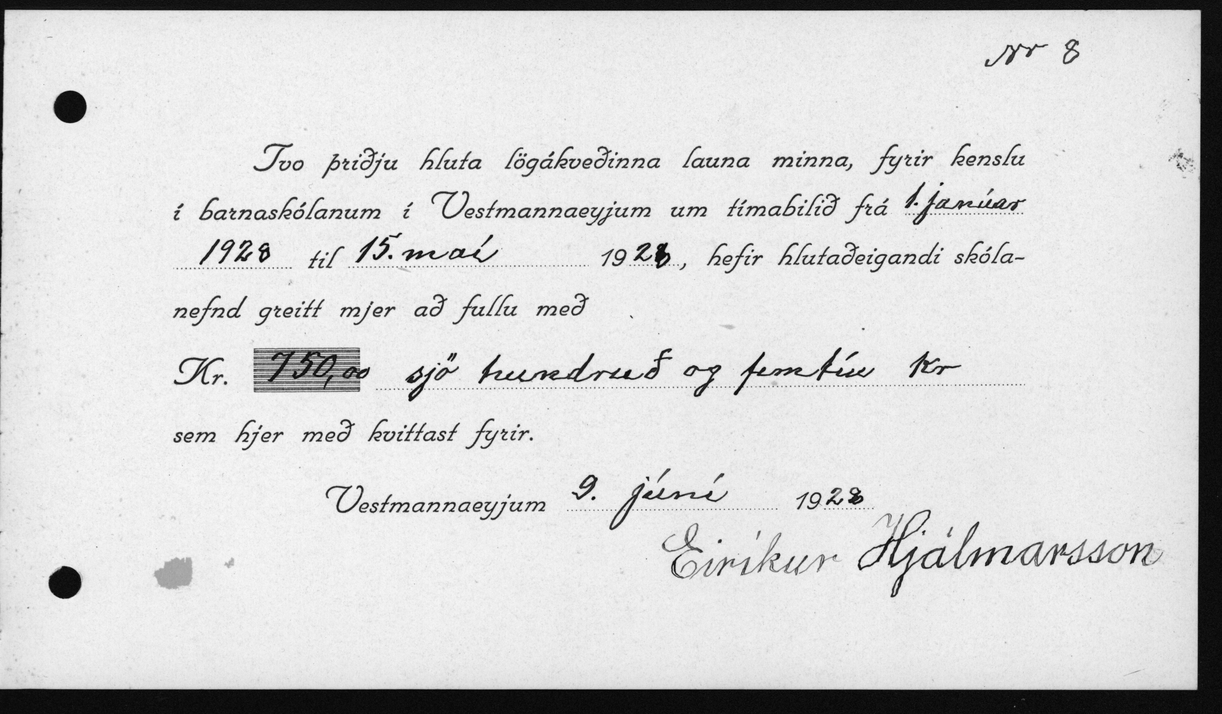 Nr 8
Tvo þriðju hluta lögákveðinna launa minna, fyrir kenslu
í barnaskólanum í Vestmannaeyjum um tímabilið frá 1. janúar
1928 til 15. maí 1928, hefir hlutaðeigandi skóla-
nefnd greitt mjer að fullu með
Kr. 750,00 sjö hundruð og fimtíu kr
sem hjer með kvittast fyrir.
Vestmannaeyjum 9. júní 1928
Eiríkur Hjálmarsson